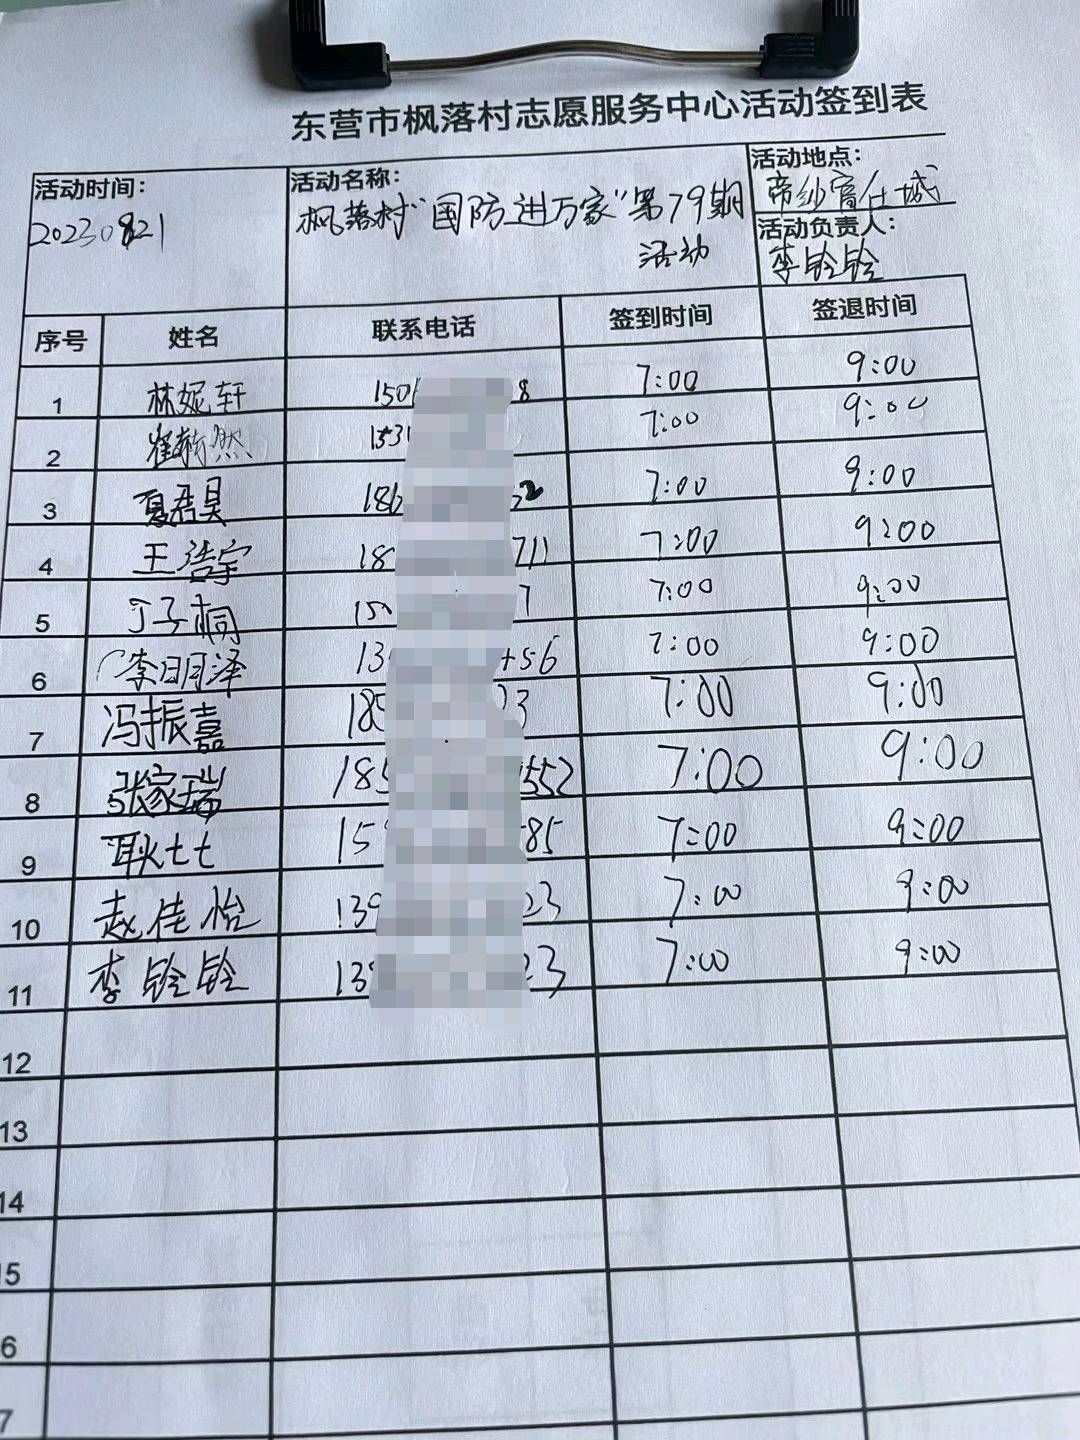 东营市枫落村志愿服务中心活动签到表
活动时间：
20230821
活动名称：
枫落村“国防进万家”第79期
活动
活动地点：
帝纱富仕城
活动负责人：
李铃铃
序号 姓名 联系电话 签到时间 签退时间
1 林妮轩 150 8 7:00 9:00
2 崔 然 1531 7:00 9:00
3 夏君昊 186 2 7:00 9:00
4 王浩宇 18 711 7:00 9:00
5 丁子桐 150 7 7:00 9:00
6 李明泽 13 56 7:00 9:00
7 冯振嘉 185 3 7:00 9:00
8 张家瑞 185 552 7:00 9:00
9 耿七七 15 85 7:00 9:00
10 赵佳怡 139 23 7:00 9:00
11 李铃铃 139 23 7:00 9:00
12
13
14
15
6
7